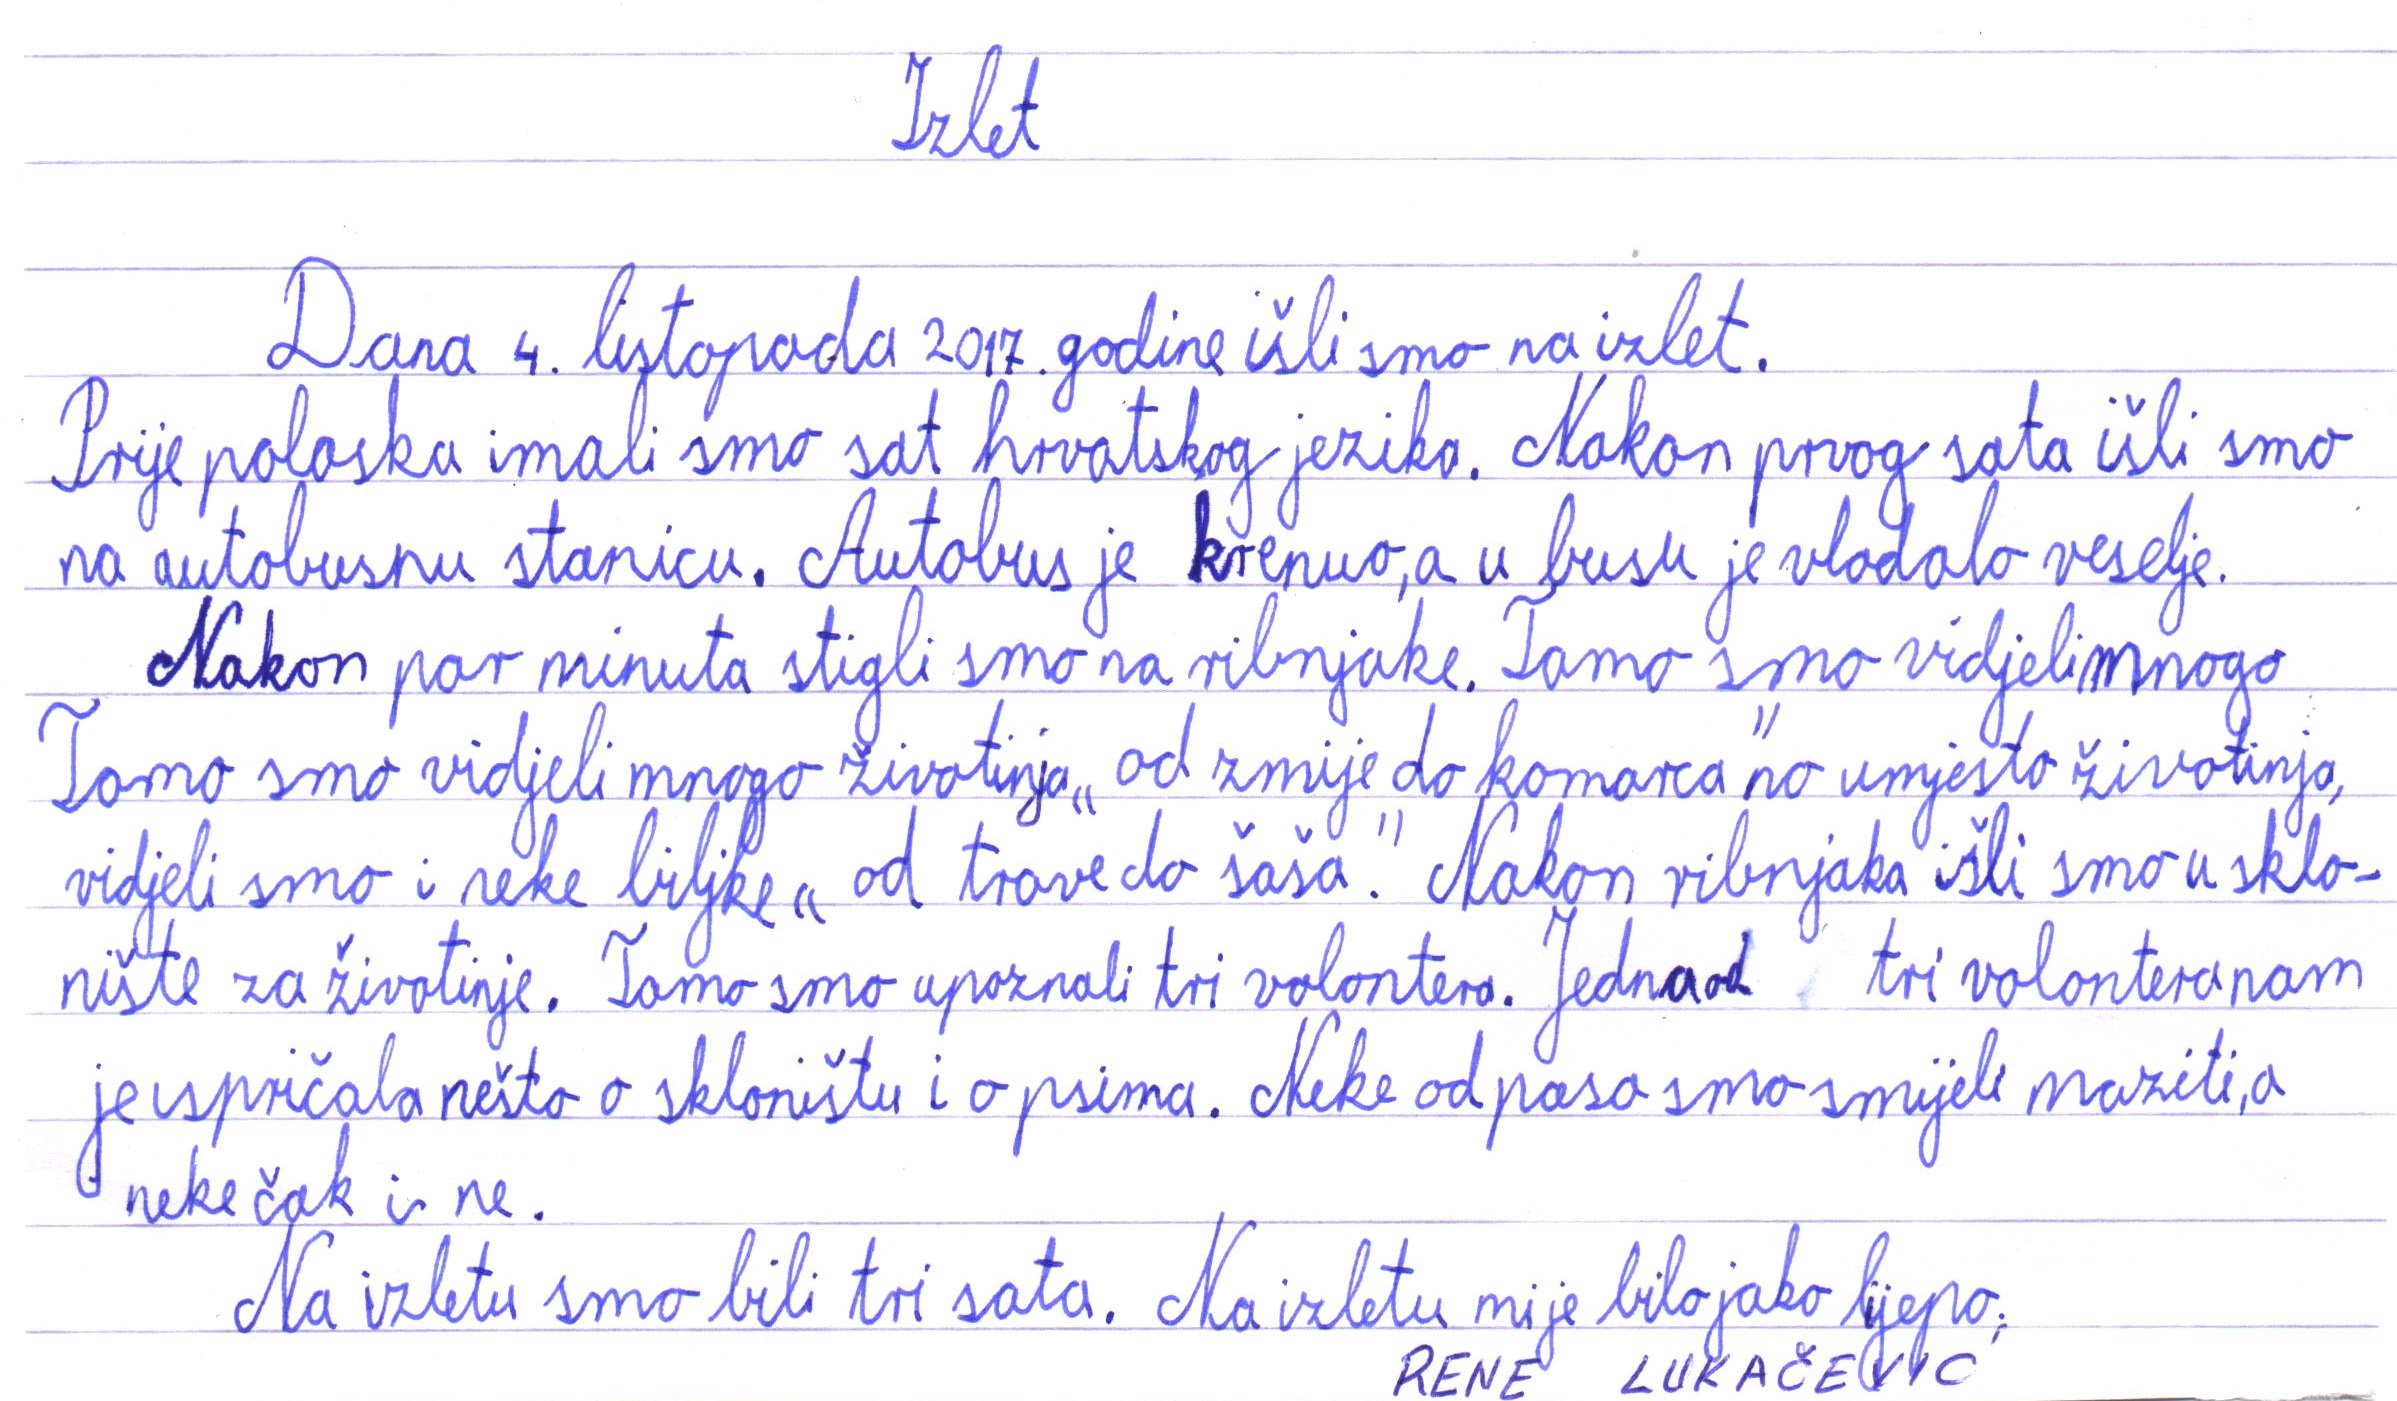 Izlet
Dana 4. listopada 2017. godine išli smo na izlet.
Prije polaska imali smo sat hrvatskog jezika. Nakon prvog sata išli smo
na autobusnu stanicu. Autobus je krenuo, a u busu je vladalo veselje.
Nakon par minuta stigli smo na ribnjake. Tamo smo vidjeli mnogo
Tamo smo vidjeli mnogo životinja „ od zmije do komarca" no umjesto životinja,
vidjeli smo i neke biljke „ od trave do šaša." Nakon ribnjaka išli smo u sklo-
nište za životinje. Tamo smo upoznali tri volontera. Jedna od tri volontera nam
je ispričala nešto o skloništu i o psima. Neke od pasa smo smijeli maziti, a
neke čak i ne.
Na izletu smo bili tri sata. Na izletu mi je bilo jako lijepo.
RENE LUKAČEVIC